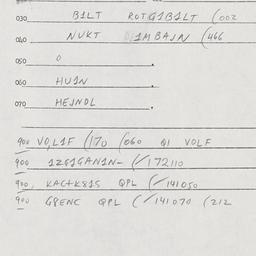 030 B1LT ROTG1B1LT (002
040 NUKT 1MBAJN (466
050 O .
060 HU1N .
070 HEJNDL .
900 VO,L1F (170 (060 Q1 VOLF
900 1Z61GAN1N- (/172110
900, KACTK81S QPL (/141050
900 GPENC QPL (/141070 (212